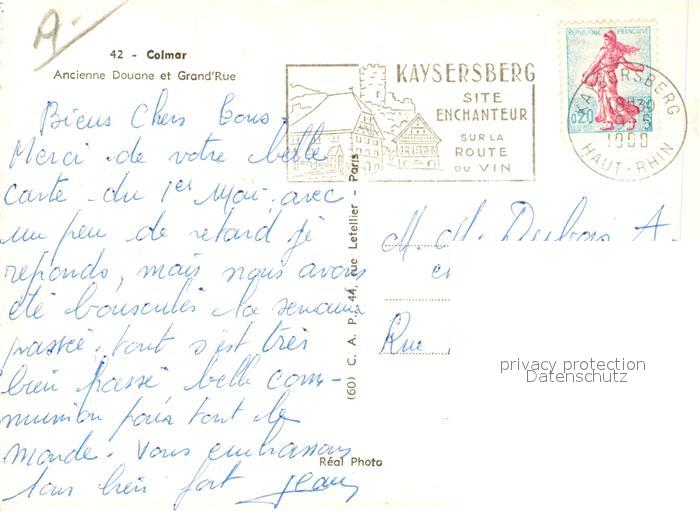 A-
42 - Colmar
Ancienne Douane et Grand'Rue
KAYSERSBERG
SITE
ENCHANTEUR
SUR LA
ROUTE
DU VIN
REPUBLIQUE FRANÇAISE
0,20
KAYSERSBERG
HAUT-RHIN
Biens Chers tous.
Merci de votre belle
carte du 1er Mai. avec
un peu de retard je
reponds, mais nous avons
été bousculés la semaine
passée. tout s'est très
bien passé belle com-
munion pour tout le
monde. Vous embrassons
tous bien fort Jean
M. M. Dubois A.
Rue
(60) C. A. P., 44, rue Letellier - Paris
Réal Photo
privacy protection
Datenschutz